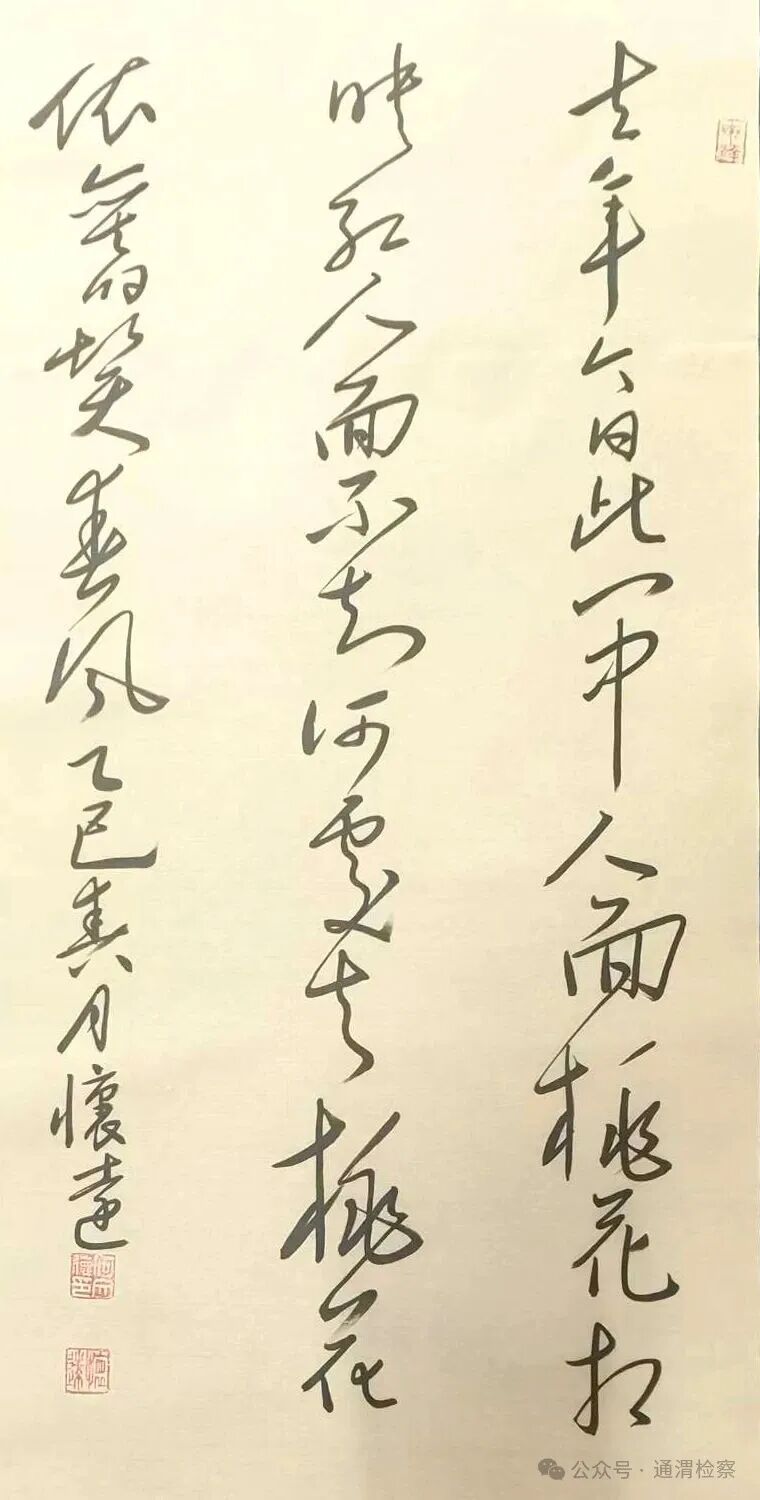 去年今日此门中人面桃花相
映红人面不知何處去桃花
依舊笑春风乙巳春月懷遠
公众号·通渭检察